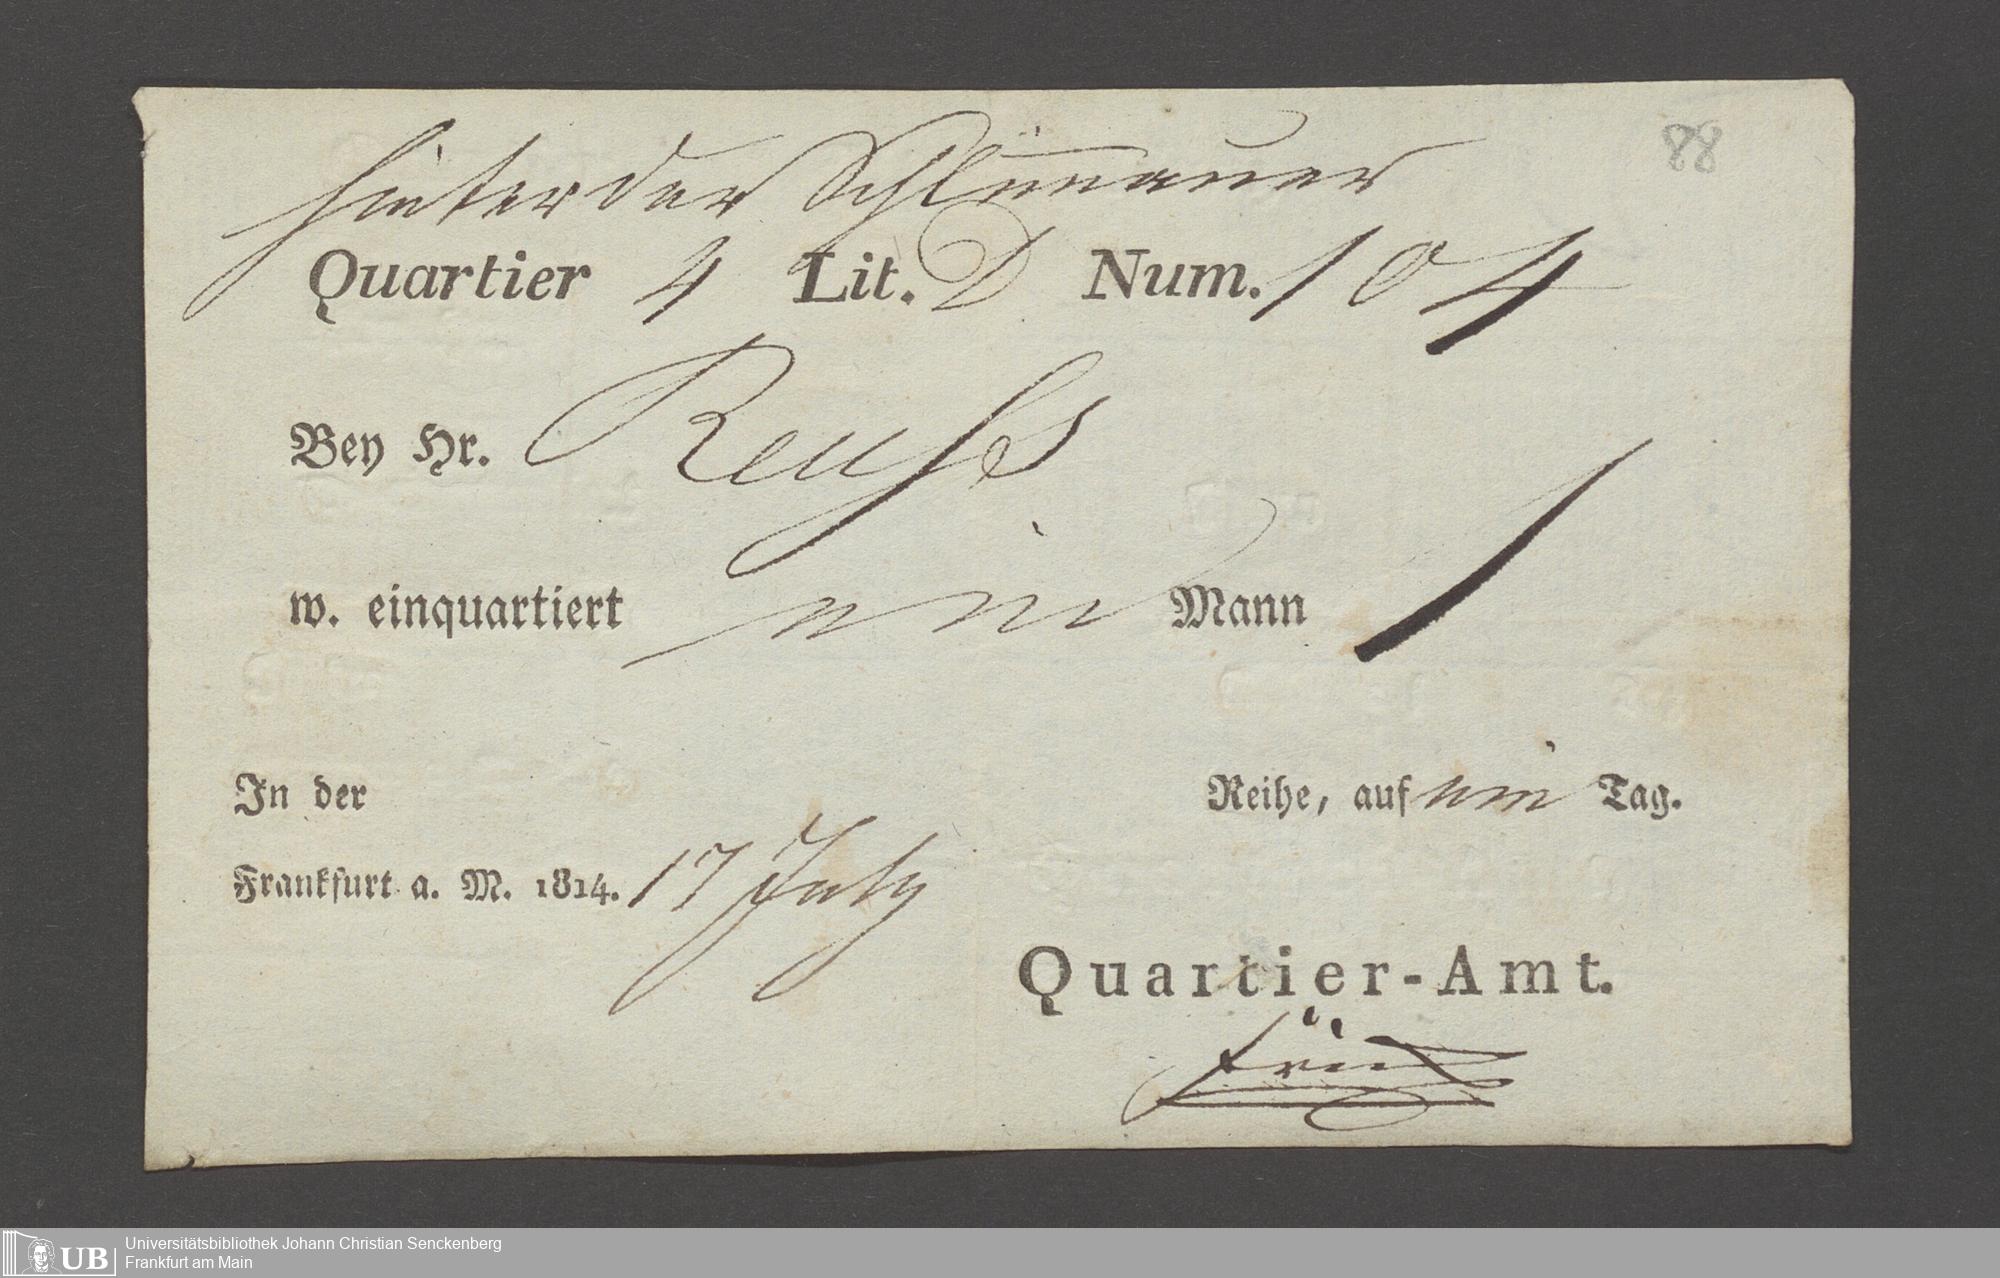 88
hinter der Schlimauer
Quartier 4 Lit. D Num. 104
Bey Hr. Reuss
w. einquartiert ein Mann 1
In der Reihe, auf ein Tag.
Frankfurt a. M. 1814. 17 July
Quartier-Amt.
UB Universitätsbibliothek Johann Christian Senckenberg
Frankfurt am Main